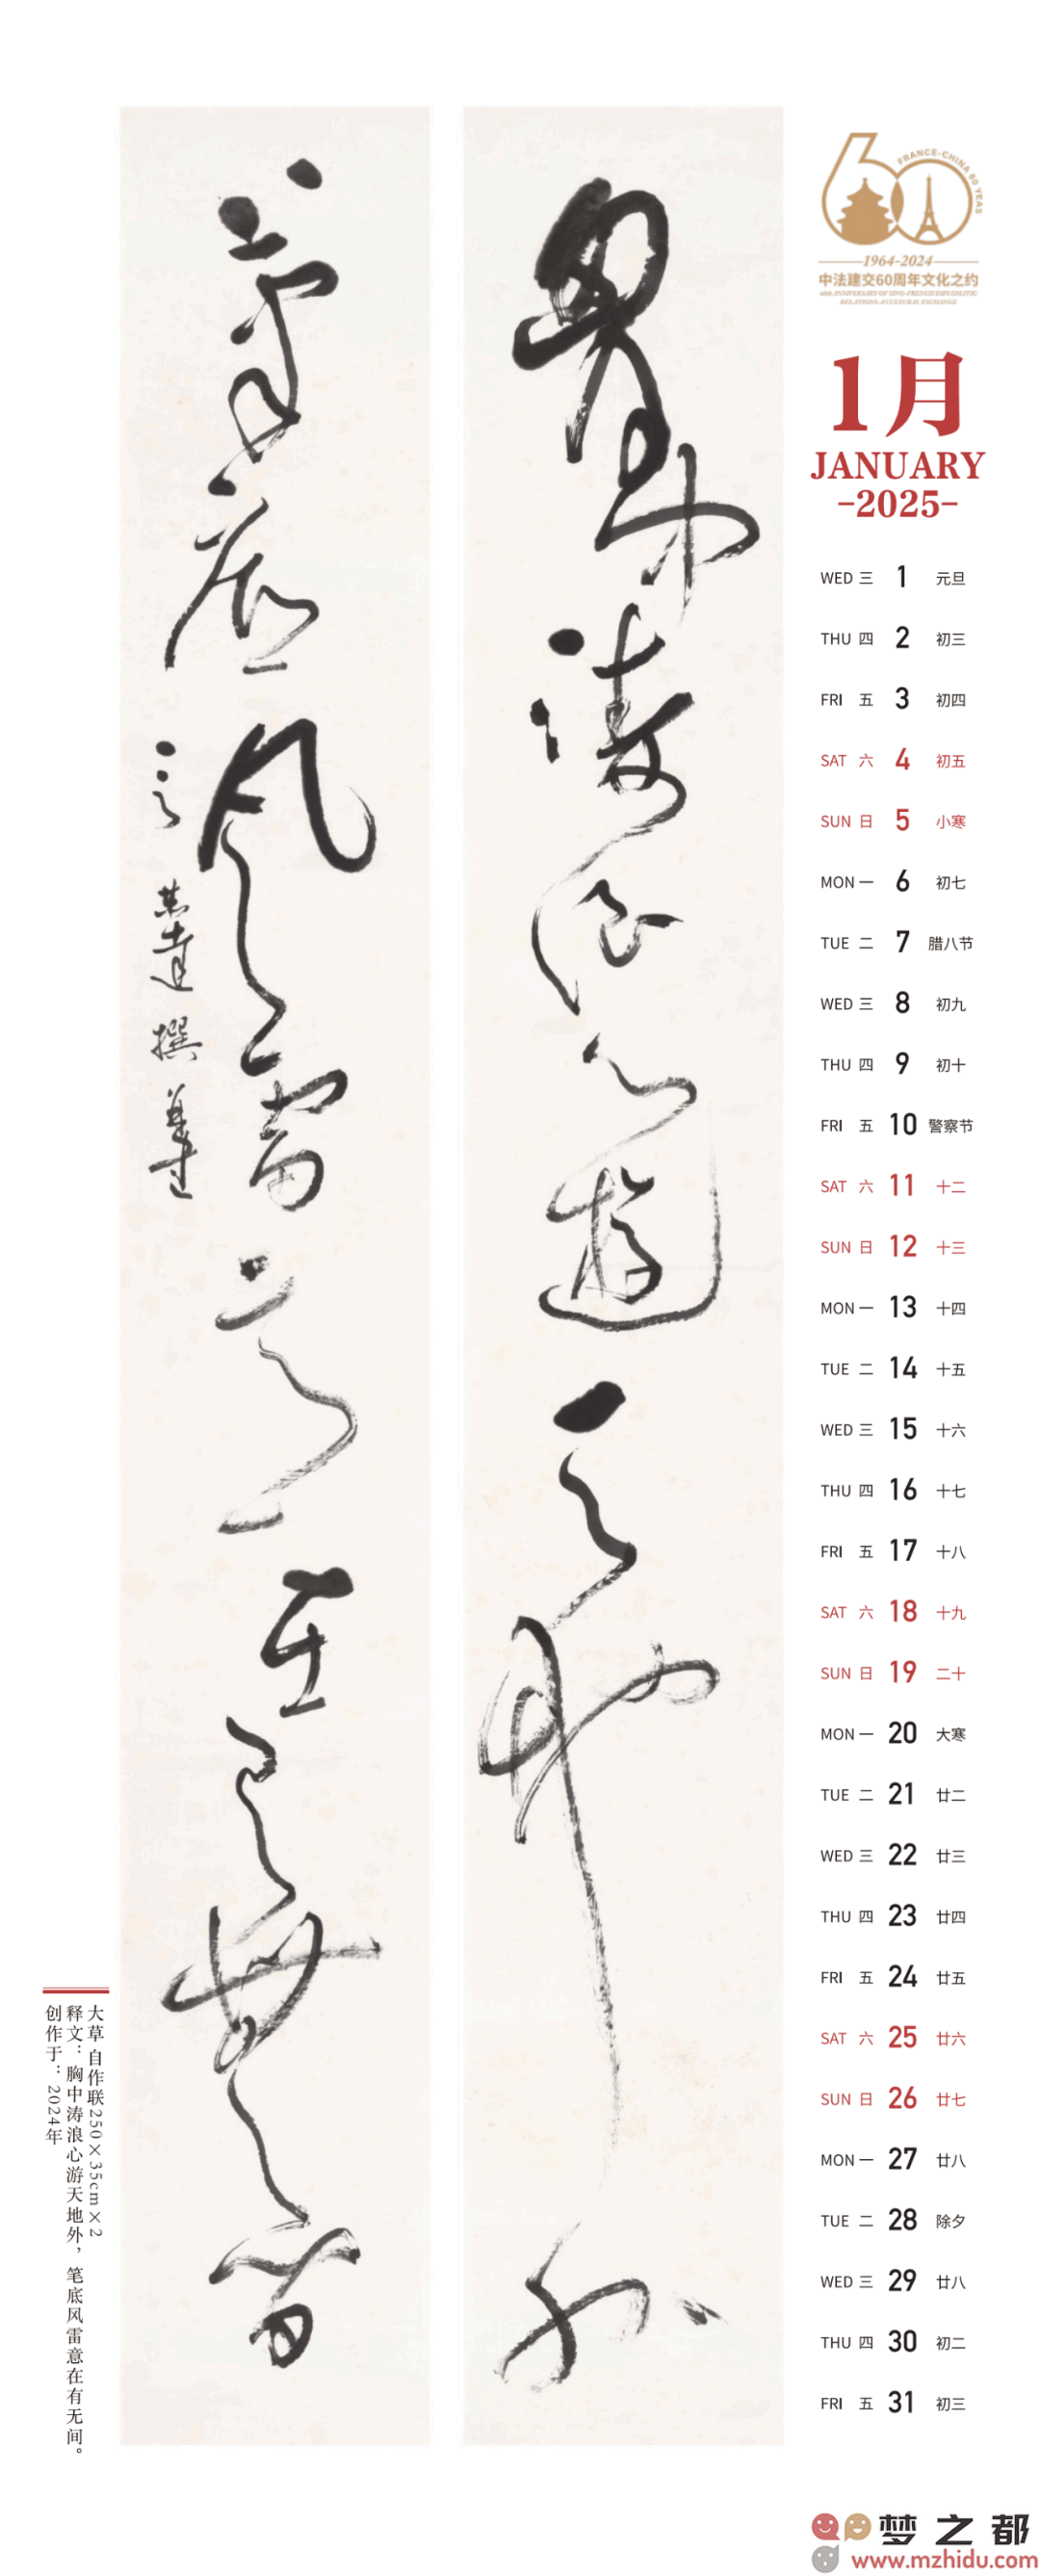 FRANCE-CHINA 60 YEAS
1964-2024
中法建交60周年文化之约
60th ANNIVERSARY OF SINO-FRENCH DIPLOMATIC
RELATIONS: A CULTURAL EXCHANGE
1月
JANUARY
-2025-
WED 三 1 元旦
THU 四 2 初三
FRI 五 3 初四
SAT 六 4 初五
SUN 日 5 小寒
MON 一 6 初七
TUE 二 7 腊八节
WED 三 8 初九
THU 四 9 初十
FRI 五 10 警察节
SAT 六 11 十二
SUN 日 12 十三
MON 一 13 十四
TUE 二 14 十五
WED 三 15 十六
THU 四 16 十七
FRI 五 17 十八
SAT 六 18 十九
SUN 日 19 二十
MON 一 20 大寒
TUE 二 21 廿二
WED 三 22 廿三
THU 四 23 廿四
FRI 五 24 廿五
SAT 六 25 廿六
SUN 日 26 廿七
MON 一 27 廿八
TUE 二 28 除夕
WED 三 29 廿八
THU 四 30 初二
FRI 五 31 初三
胸中涛浪心遊天地外
笔底风雷意在有无间
大草 自作联250×35cm×2
释文：胸中涛浪心游天地外，笔底风雷意在有无间。
创作于：2024年
梦之都
www.mzhidu.com